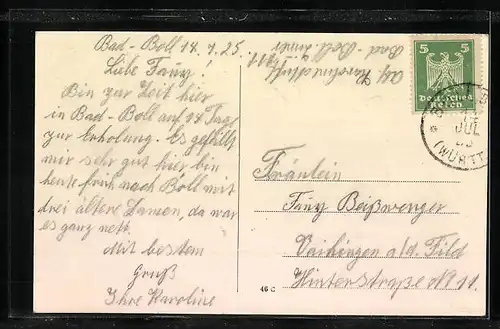 Bad-Boll 18.7.25.
Liebe Fany!
Bin zur Zeit hier
in Bad-Boll auf 14 Tag
zur Erholung. Es gefällt
mir sehr gut hier, bin
heute früh nach Boll mit
drei ältere Damen, da war
es ganz nett.
Mit bestem
Gruß
Ihre Karoline
Bad-Boll
5 5
Deutsches
Reich
JUL
(WÜRTT
Fräulein
Fany Beißwenger
Vaihingen a/d. Fild
Hinterstraße No 11.
46 c